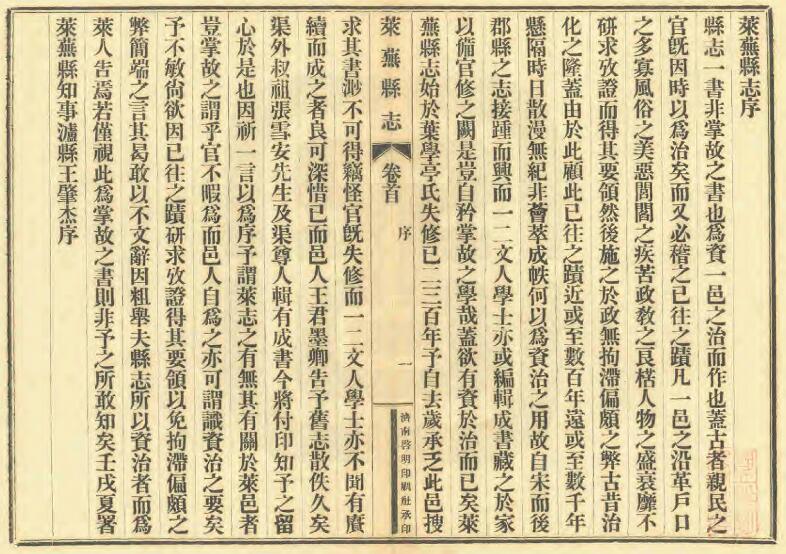 萊蕪縣志序
縣志一書非掌故之書也爲資一邑之治而作也蓋古者親民之
官旣因時以爲治矣而又必稽之已往之蹟凡一邑之沿革戶口
之多寡風俗之美惡閭閻之疾苦政敎之良楛人物之盛衰靡不
硏求攷證而得其要領然後施之於政無拘滯偏頗之弊古昔治
化之隆蓋由於此顧此已往之蹟近或至數百年遠或至數千年
懸隔時日散漫無紀非薈萃成帙何以爲資治之用故自宋而後
郡縣之志接踵而興而一二文人學士亦或編輯成書藏之於家
以備官修之闕是豈自矜掌故之學哉蓋欲有資於治而已矣萊
蕪縣志始於葉學亭氏失修已二三百年予自去歲承乏此邑搜
萊蕪縣志
卷首
序
一
濟南啓明印刷社承印
求其書渺不可得竊怪官旣失修而一二文人學士亦不聞有廣
續而成之者良可深惜已而邑人王君墨卿告予舊志散佚久矣
渠外叔祖張雪安先生及渠尊人輯有成書今將付印知予之留
心於是也因祈一言以爲序予謂萊志之有無其有關於萊邑者
豈掌故之謂乎官不暇爲而邑人自爲之亦可謂識資治之要矣
予不敏尙欲因已往之蹟硏求攷證得其要領以免拘滯偏頗之
弊簡端之言其曷敢以不文辭因粗舉夫縣志所以資治者而爲
萊人吿焉若僅視此爲掌故之書則非予之所敢知矣壬戌夏署
萊蕪縣知事瀘縣王肇杰序